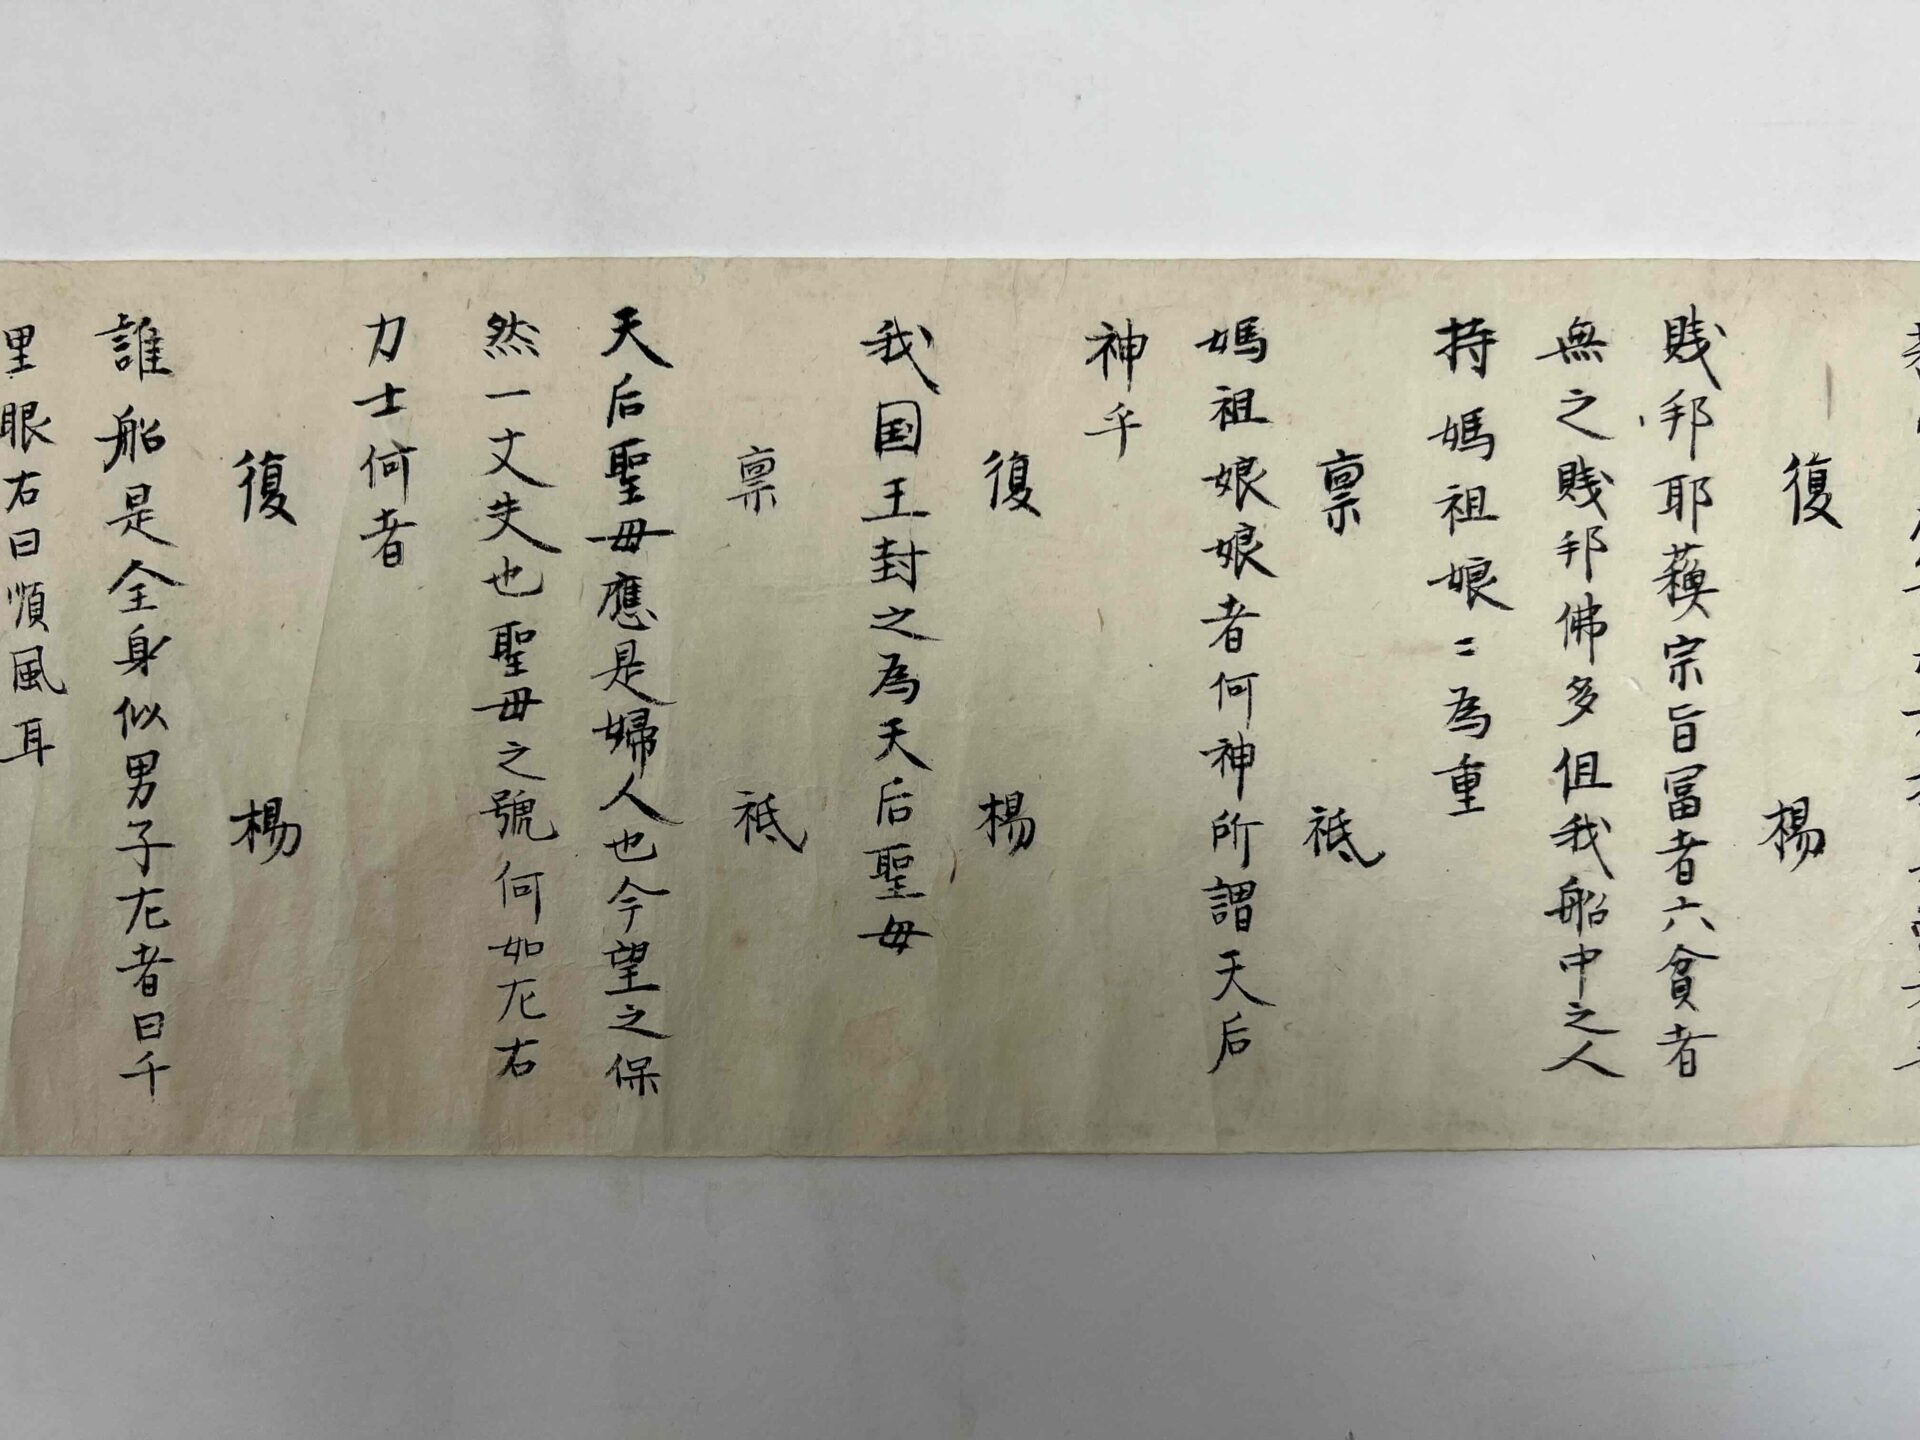 復　楊
賎邦耶蘓宗旨冨者六貧者
無之賎邦佛多但我船中之人
持媽祖娘〻為重
稟　祗
媽祖娘娘者何神所謂天后
神乎
復　楊
我国王封之為天后聖母
稟　祗
天后聖母應是婦人也今望之保
然一丈夫也聖母之號何如左右
力士何者
復　楊
誰船是全身似男子左者曰千
里眼右曰順風耳